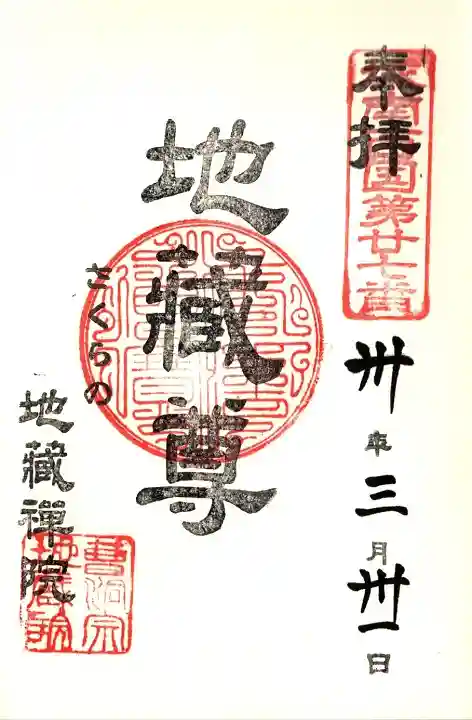 奉拝
第廿七番
卅年三月卅一日
地藏尊
さくらの
地藏禪院
曹洞宗
地蔵院